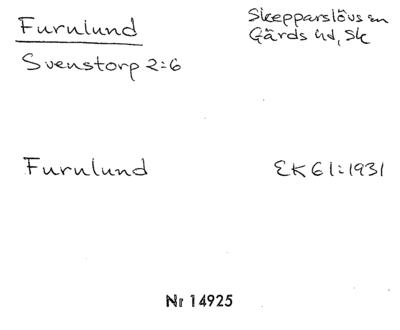 Furulund
Skepparslövs sn
Gärds hd, Sk
Svenstorp 2:6
Furulund
EK 61:1931
Nr 14925